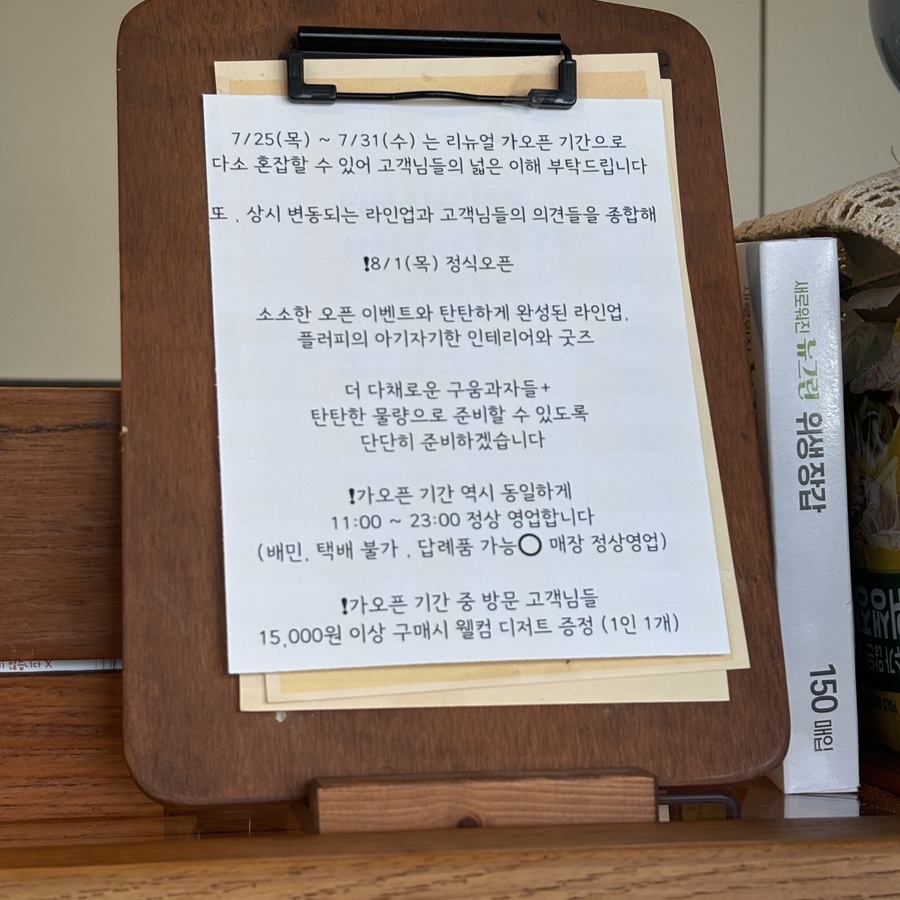 7/25(목) ~ 7/31(수) 는 리뉴얼 가오픈 기간으로
다소 혼잡할 수 있어 고객님들의 넓은 이해 부탁드립니다
또 , 상시 변동되는 라인업과 고객님들의 의견들을 종합해
❗8/1(목) 정식오픈
소소한 오픈 이벤트와 탄탄하게 완성된 라인업,
플러피의 아기자기한 인테리어와 굿즈
더 다채로운 구움과자들+
탄탄한 물량으로 준비할 수 있도록
단단히 준비하겠습니다
❗가오픈 기간 역시 동일하게
11:00 ~ 23:00 정상 영업합니다
(배민, 택배 불가 , 답례품 가능⭕ 매장 정상영업)
❗가오픈 기간 중 방문 고객님들
15,000원 이상 구매시 웰컴 디저트 증정 (1인 1개)
새로워진 뉴그린 위생장갑
150 매입
않습니다 X